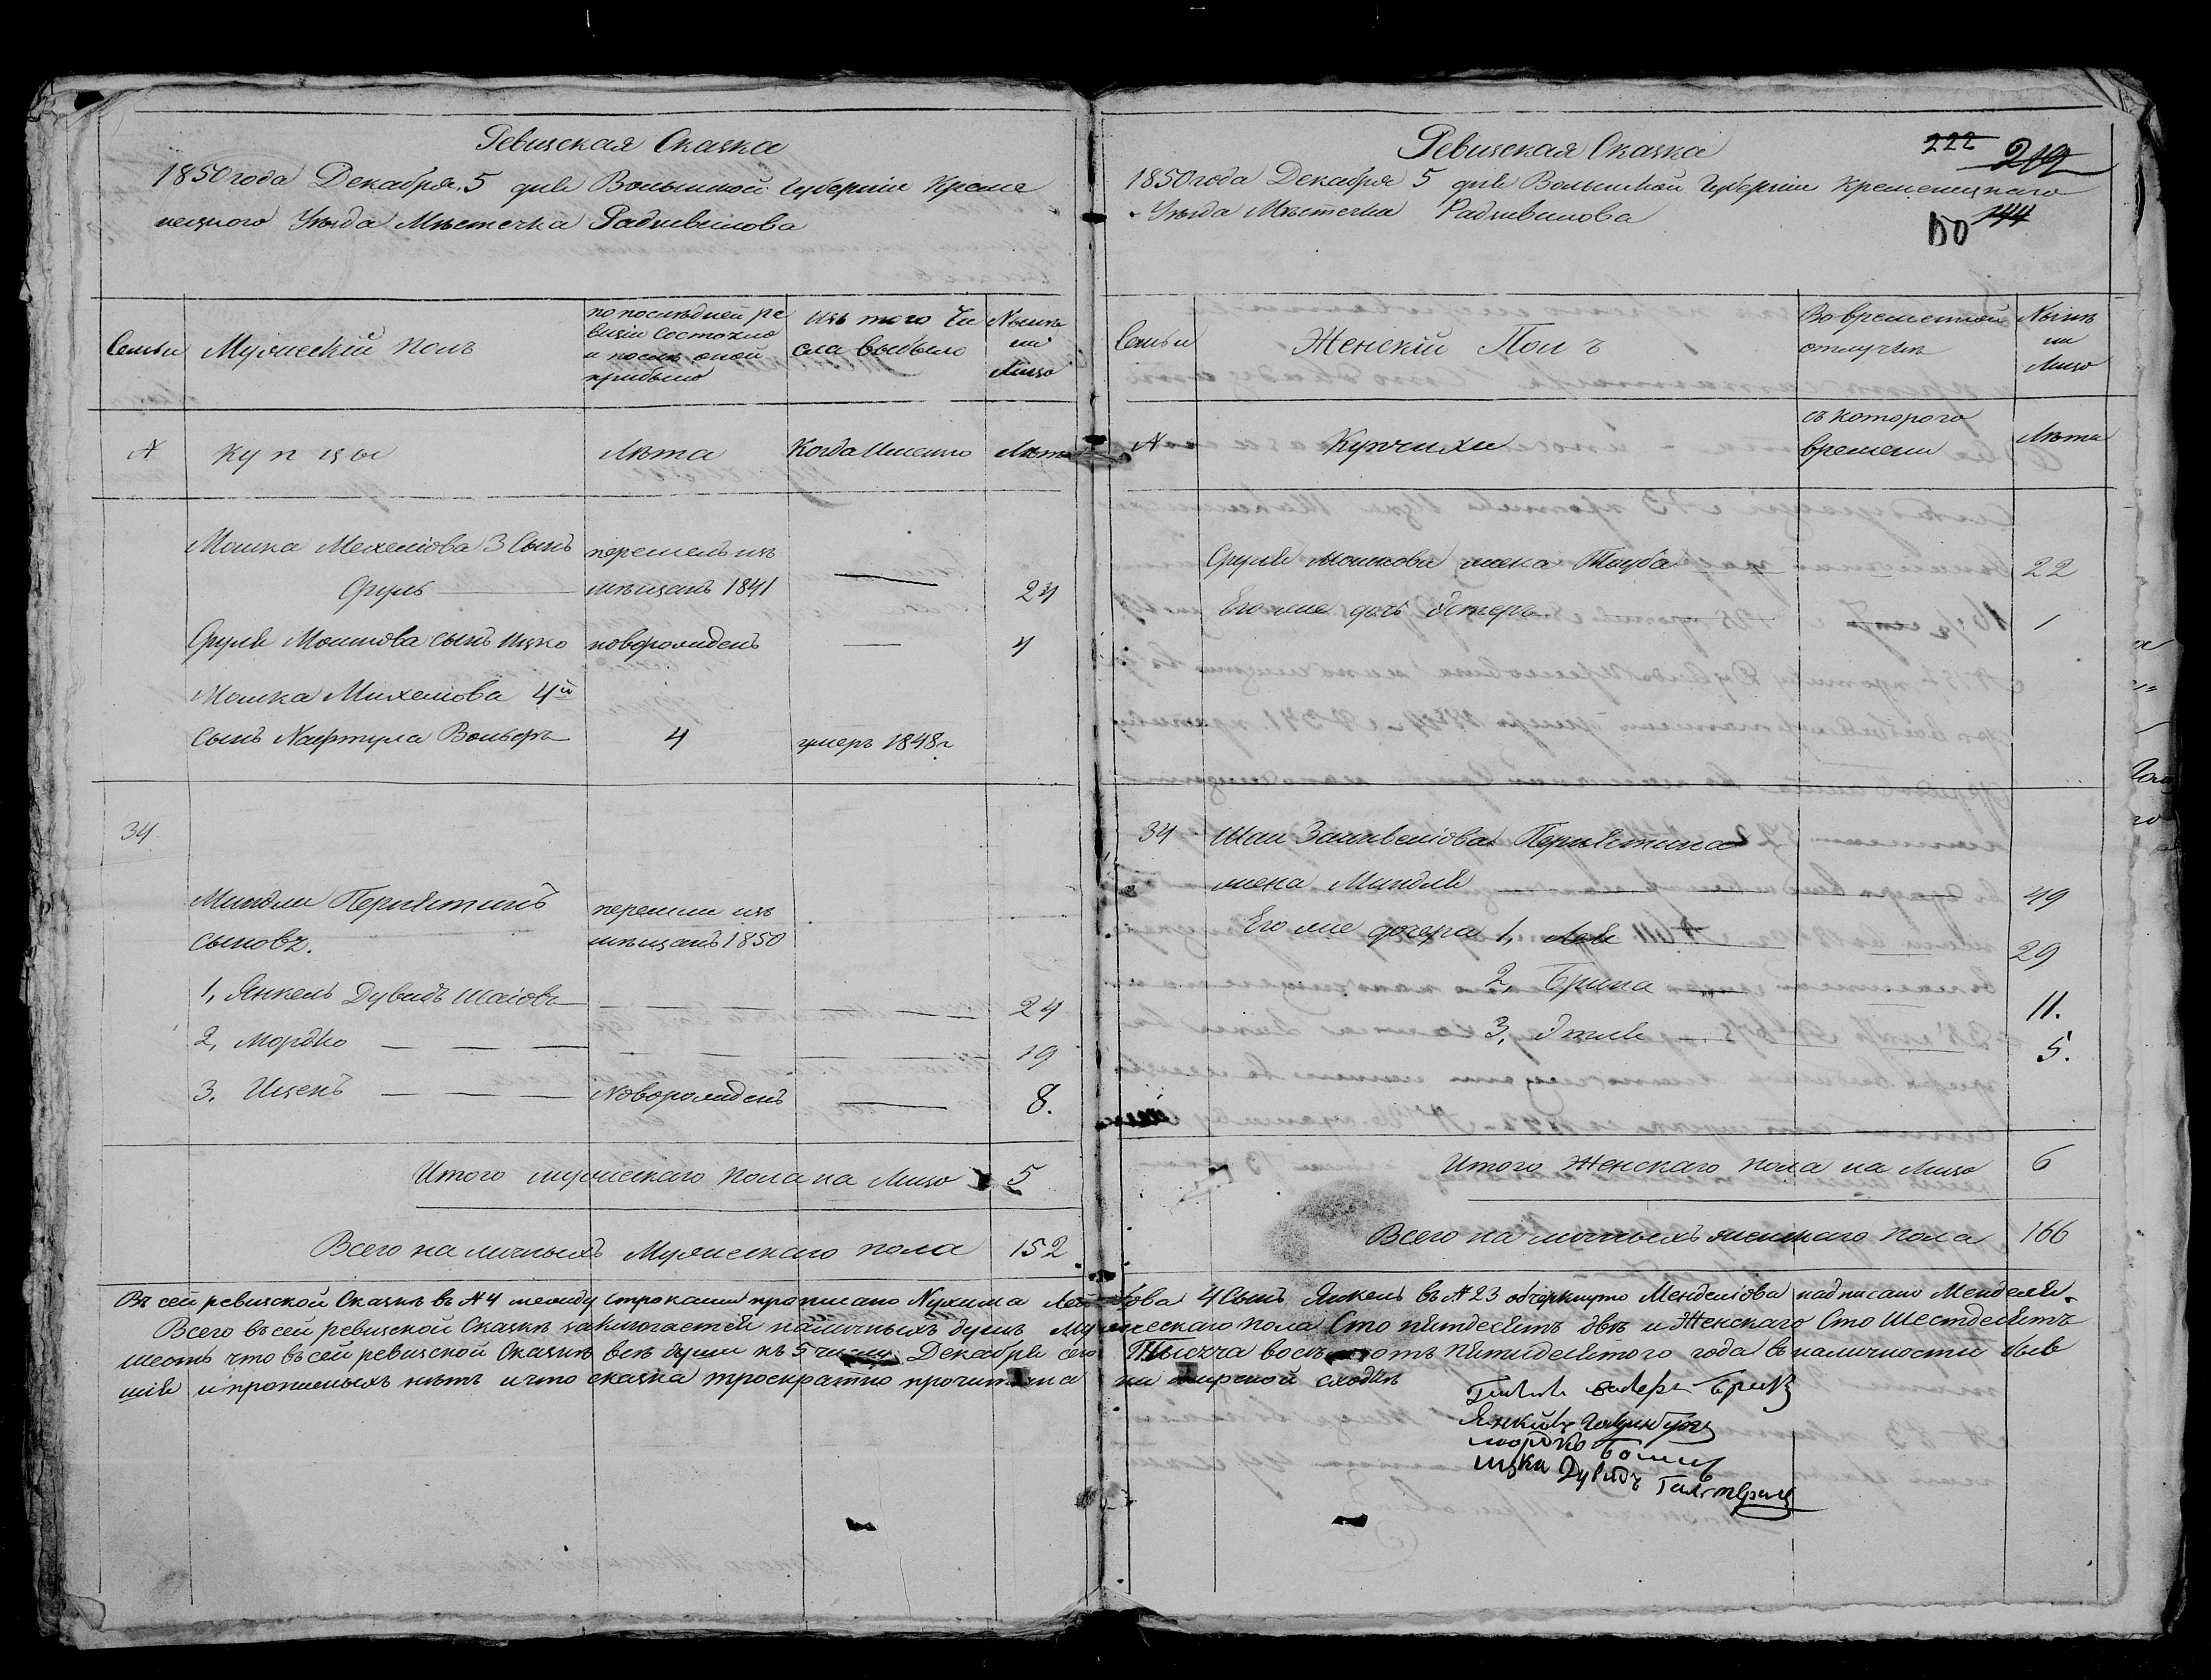 Ревизская Сказка
1850 года Декабря 5 дня Волынской Губернии Креме
нецкого Уѣзда Мѣстечка Радзивилова
Семьи
Мужескій полъ
по послѣдней ре
визіи состояло
и послѣ оной
прибыло
Изъ того Чи
сла выбыло
Нынѣ
на
Лицо
№
купцы
Лѣта
Когда Именно
Лѣта
Мошка Мехелiова 3 Сынъ перешелъ изъ
Сруль мѣщанъ 1841 24
Сруля Мошкова сынъ Ицко новорожденъ 4
Мошка Михелiова 4й
Сынъ Нафтула Вольфъ 4 умеръ 1848г
34
Миндли Перлѣтинъ перешли изъ
сыновъ. мѣщанъ 1850
1, Янкель Дувидъ Шаiовъ 24
2, Мордко 19
3. Иценъ Новорожденъ 8.
Итого мужескаго пола на лицо 5
Всего наличныхъ Мужескаго пола 152
Ревизская Сказка
222 219
1850 года Декабря 5 дня Волынской Губерніи Кременецкаго
Уѣзда Мѣстечка Радзивилова
144
150
Семьи
Женскій Полъ
Во временной
отлучкѣ
Нынѣ
на
Лицо
№
Купчихи
съ которого
времени
Лѣта
Сруля Мошкова жена Тауба 22
Его же дочь Эстеръ 1
34 Шаи Занвелiова
жена Миндля 49
Его же дочера 1, Лея 29
2, Брина 11.
3, Этля 5.
Итого Женскаго пола на лицо 6
Всего наличныхъ женскаго пола 166
Въ сей ревизской Сказкѣ въ №4 между строками прописано Нухима 4 Сынъ Янкель въ №23 обчеркнуто Менделiова надписано Менделя.
Всего въ сей ревизской Сказкѣ заключается наличныхъ душъ Мужескаго пола Сто пятдесятъ двѣ и Женскаго Сто Шестдесятъ
шесть что въ сей ревизской Сказкѣ всѣ души къ 5 числу Декабря сего Тысяча восемьсотъ пятидесятого года въ наличности быв
шiя и прописныхъ нѣтъ и что сказка троекратно прочитана на мирской сходкѣ
Мордко
Ицка Дувидъ